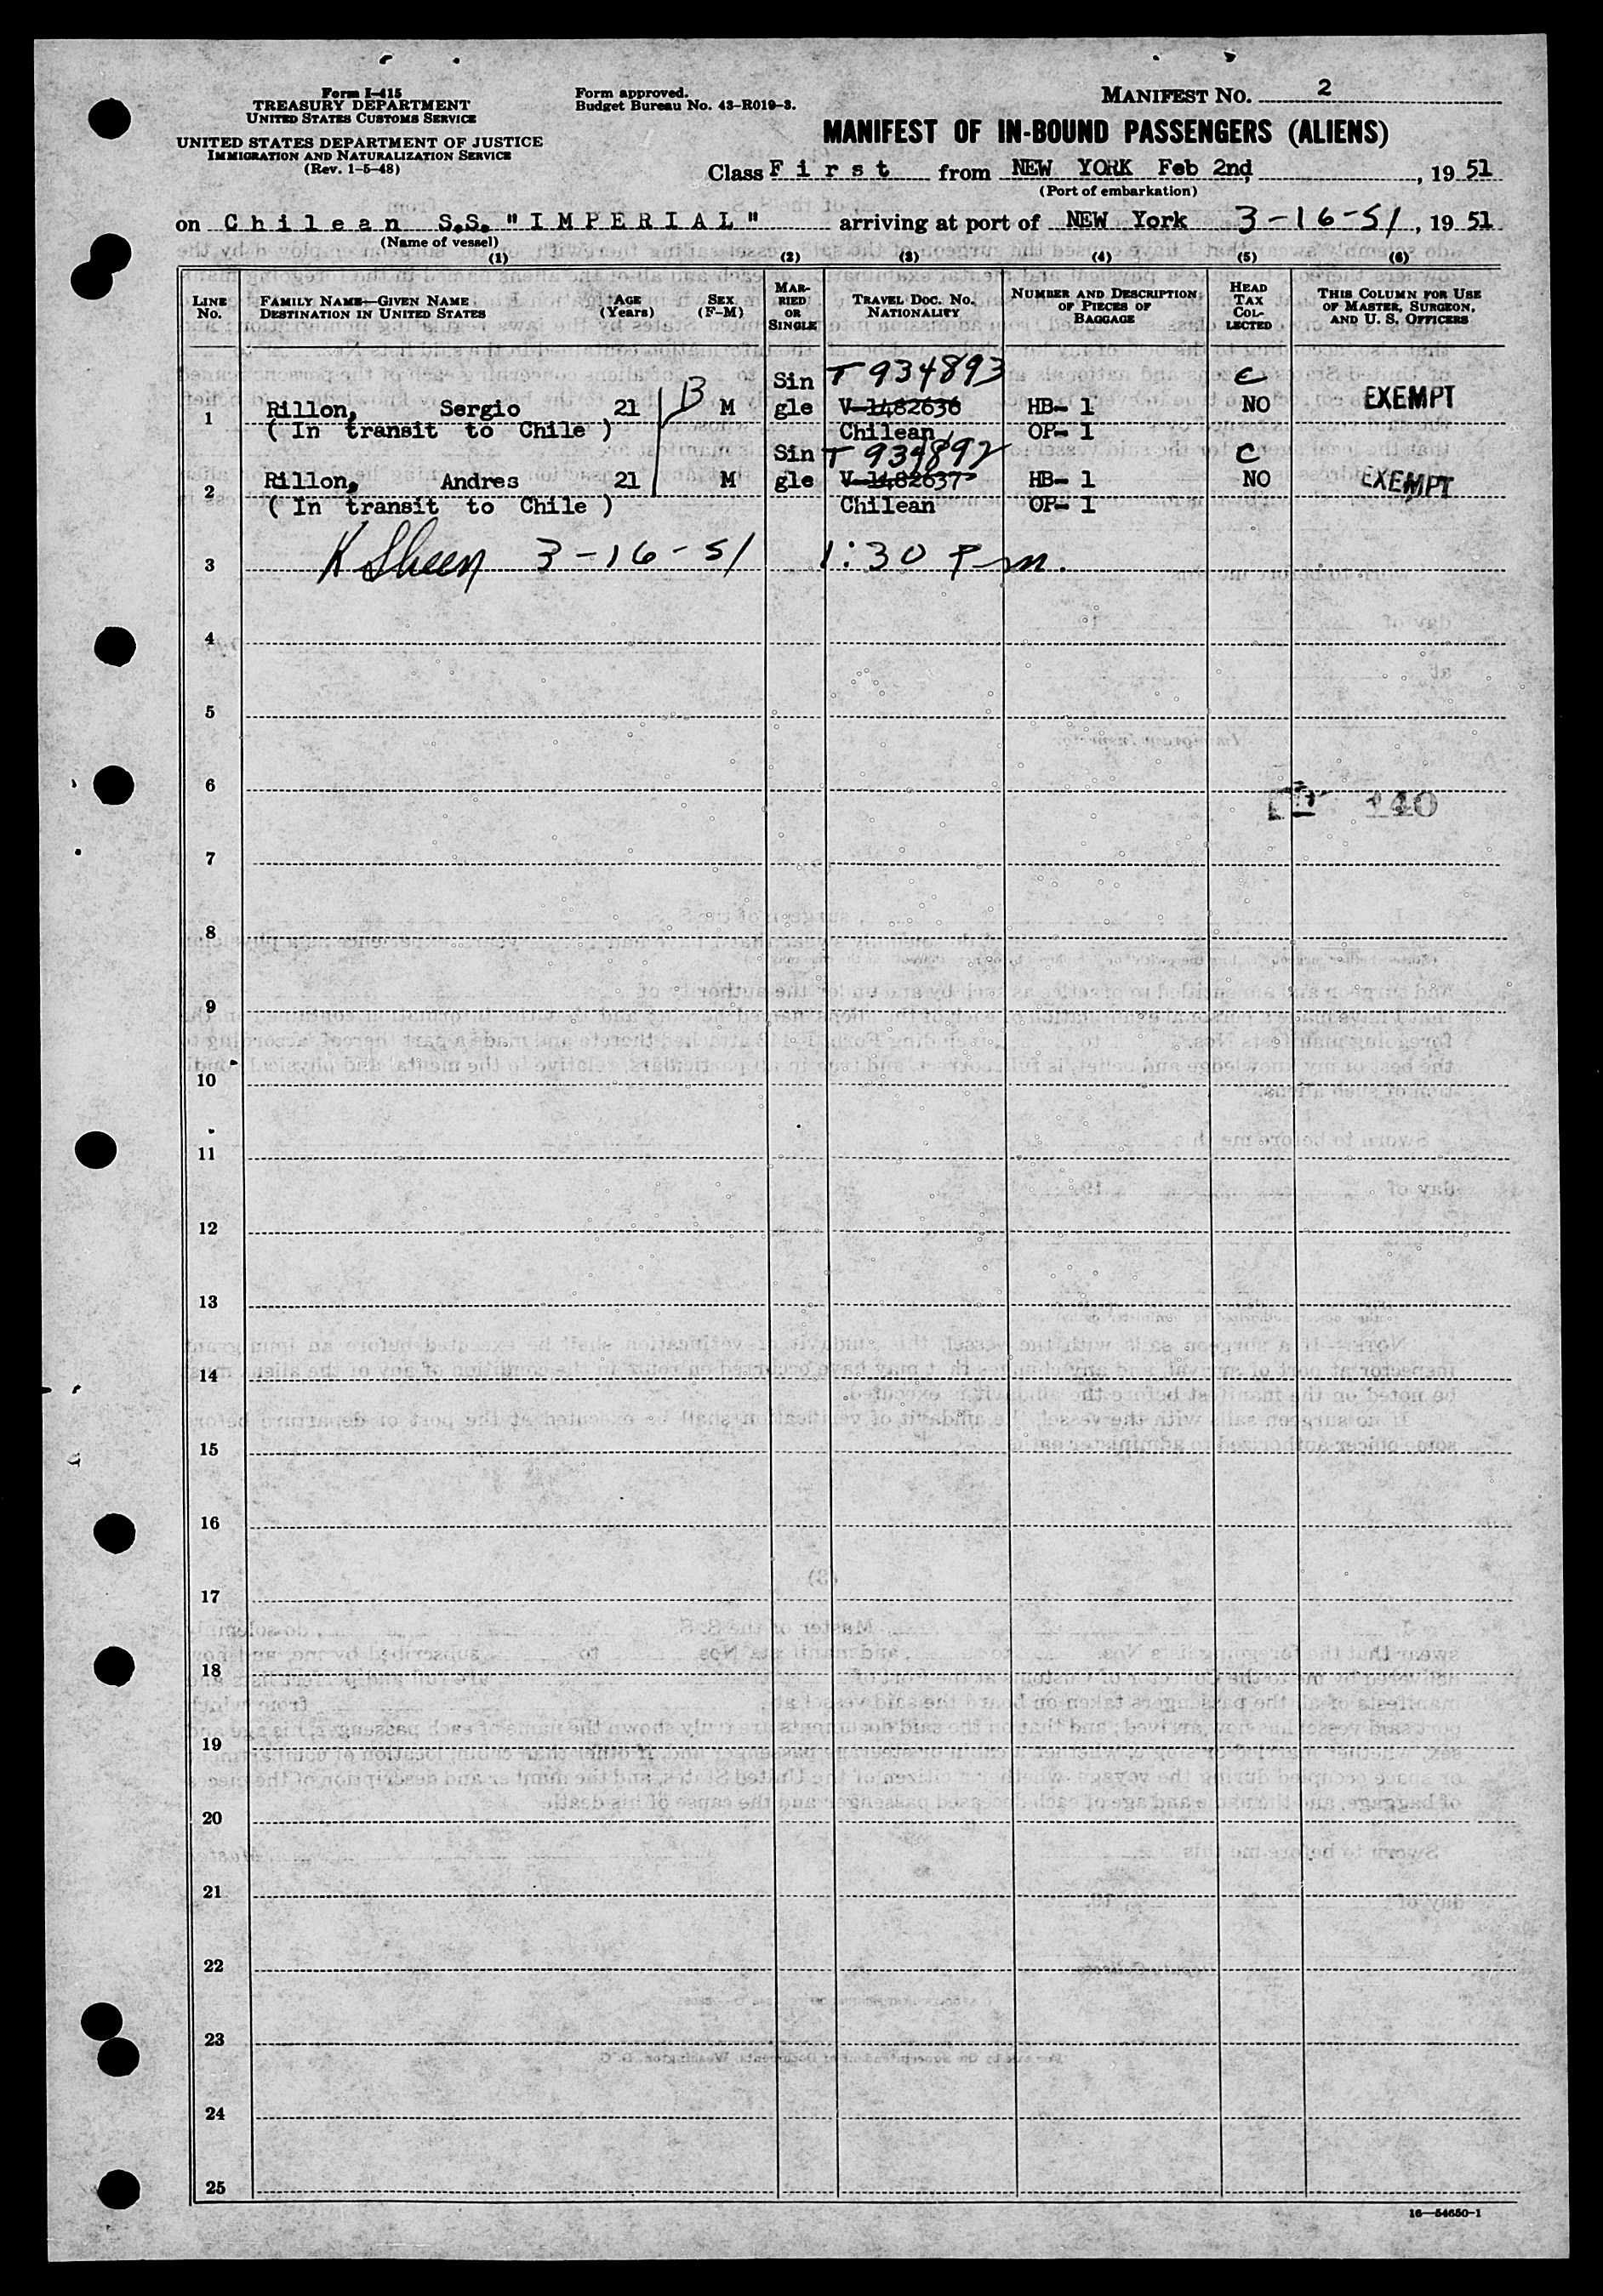 Form I-415
TREASURY DEPARTMENT
UNITED STATES CUSTOMS SERVICE
UNITED STATES DEPARTMENT OF JUSTICE
IMMIGRATION AND NATURALIZATION SERVICE
(Rev. 1-5-48)
Form approved.
Budget Bureau No. 43-R019-3.
MANIFEST NO. 2
MANIFEST OF IN-BOUND PASSENGERS (ALIENS)
Class First from NEW YORK Feb 2nd, 1951
(Port of embarkation)
on Chilean S.S. "IMPERIAL" arriving at port of NEW York 3-16-51, 1951
(Name of vessel)
(1) (2) (3) (4) (5) (6)
LINE No.
FAMILY NAME—GIVEN NAME
DESTINATION IN UNITED STATES
AGE (Years)
SEX (F-M)
MARRIED OR SINGLE
TRAVEL DOC. NO. NATIONALITY
NUMBER AND DESCRIPTION OF PIECES OF BAGGAGE
HEAD TAX COLLECTED
THIS COLUMN FOR USE OF MASTER, SURGEON, AND U. S. OFFICERS
Sin T 934893 C
1 Rillon, Sergio 21 B M gle V-1482636 HB- 1 NO EXEMPT
( In transit to Chile ) Chilean OP- 1
Sin T 934892 C
2 Rillon, Andres 21 M gle V-1482637 HB- 1 NO EXEMPT
( In transit to Chile ) Chilean OP- 1
3 K Sheen 3-16-51 1:30 Pm.
4
5
6
140
7
8
9
10
11
12
13
14
15
16
17
18
19
20
21
22
23
24
25
16—54650-1